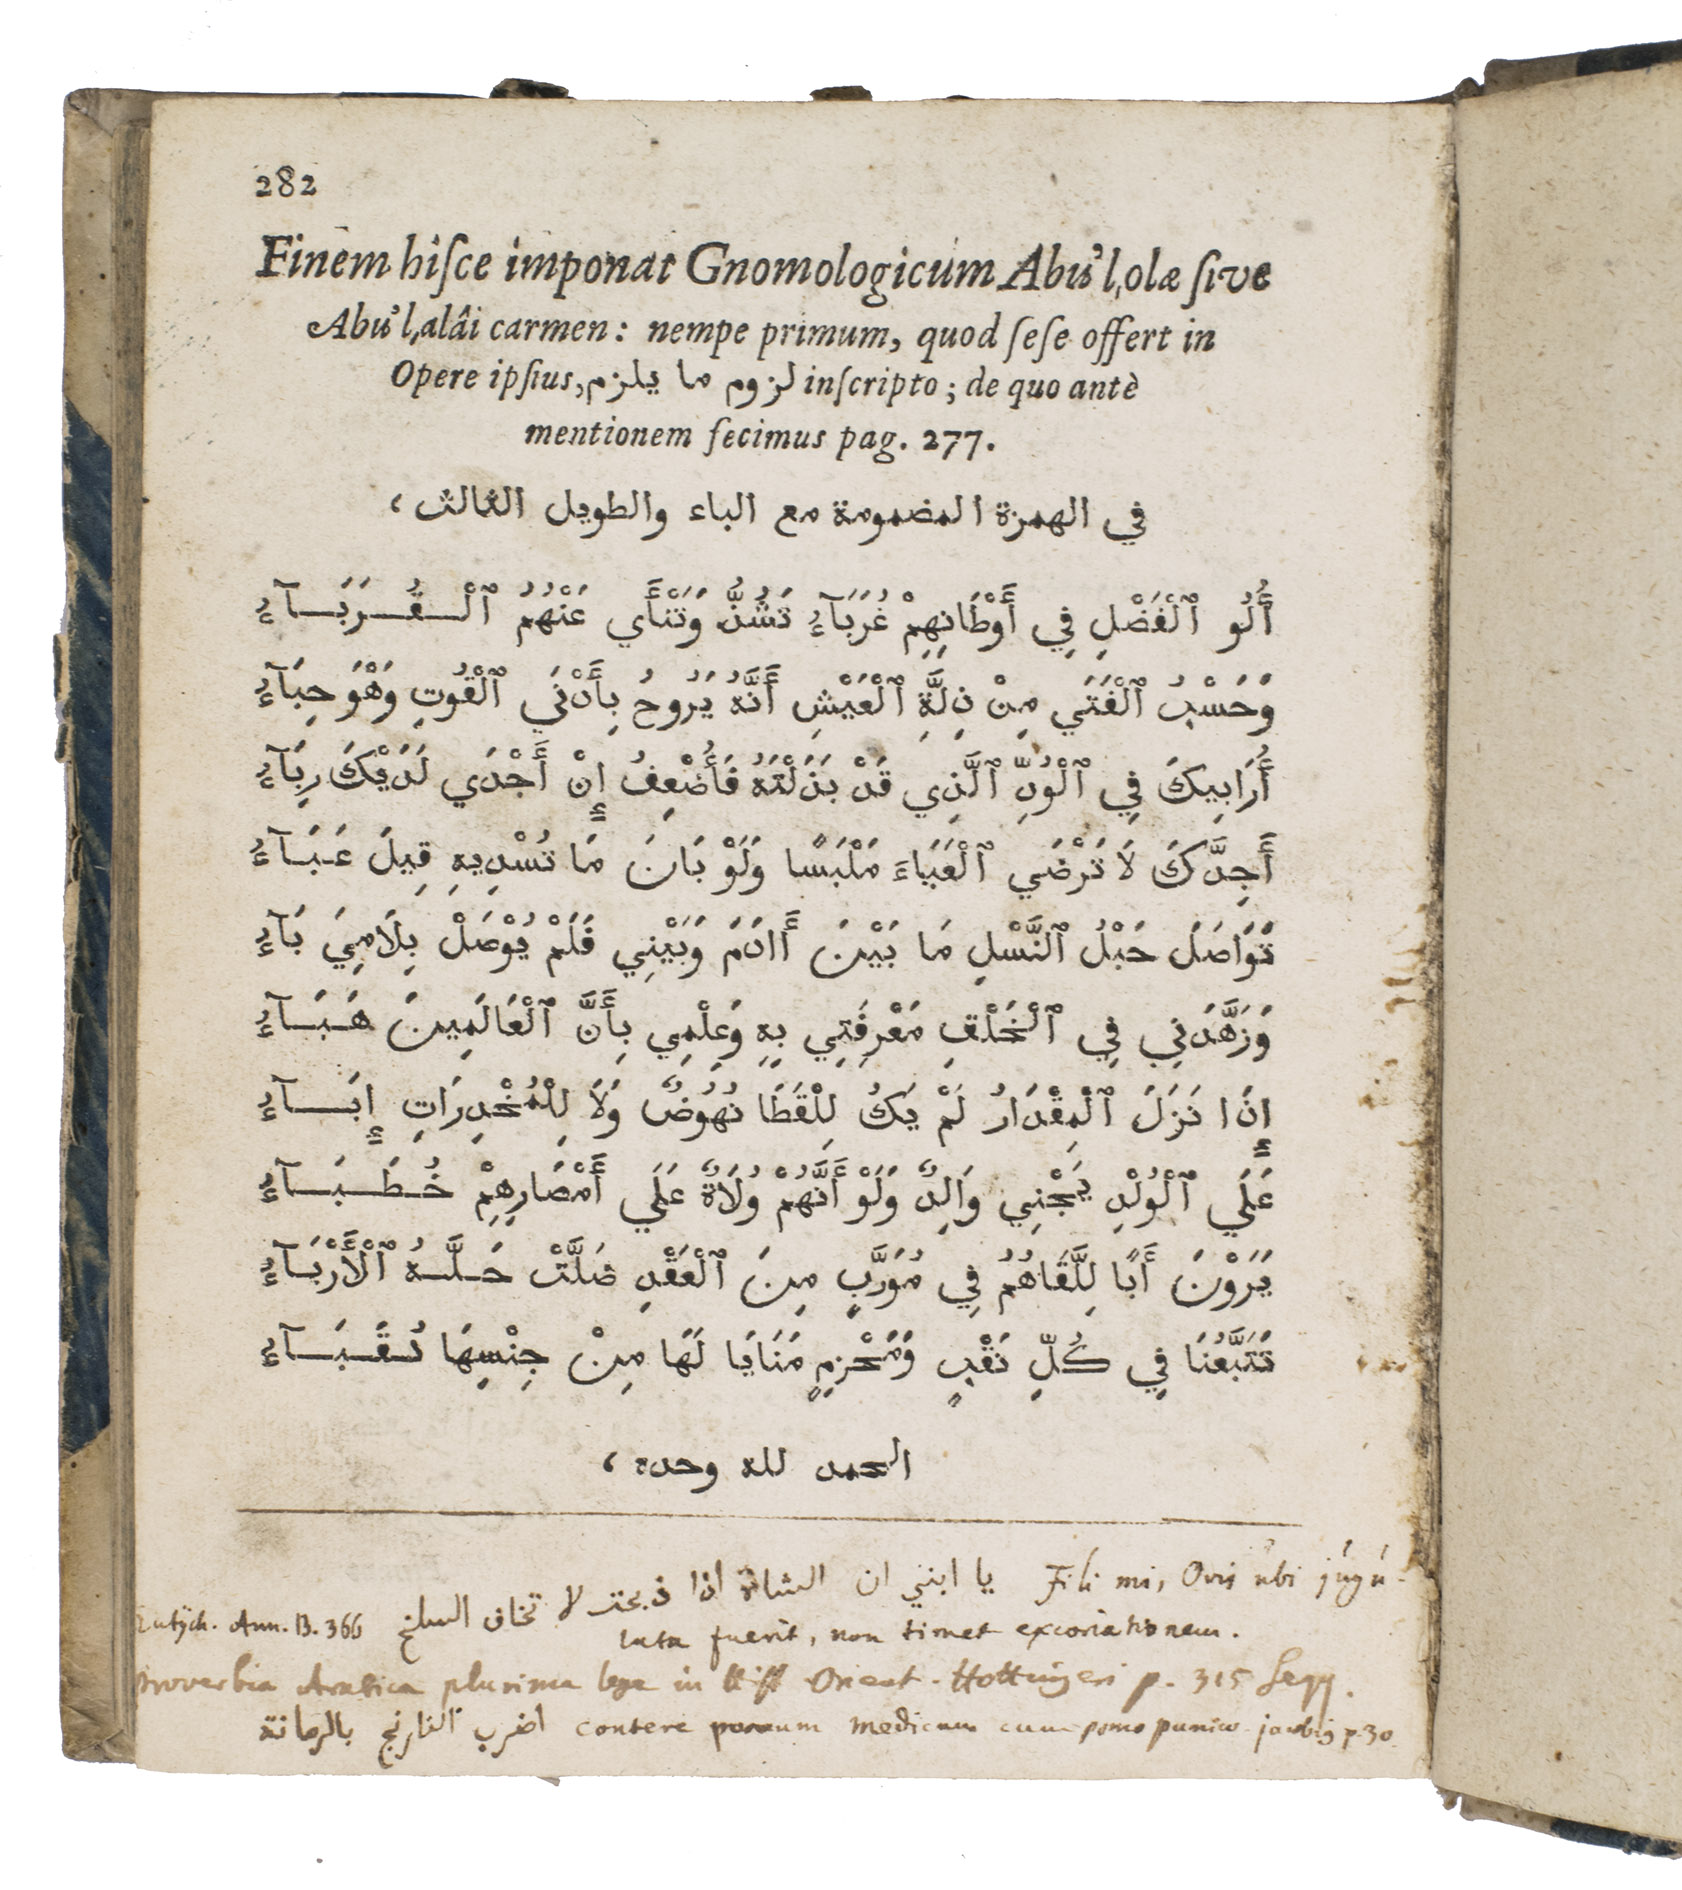 282
Finem hiſce imponat Gnomologicum Abu'l,olæ ſive
Abu'l,alâi carmen: nempe primum, quod ſeſe offert in
Opere ipſius, لزوم ما يلزم inſcripto; de quo antè
mentionem fecimus pag. 277.
في الهمزة المضمومة مع الباء والطويل الثالث ،
أُلُو ٱلْفَضْلِ فِي أَوْطَانِهِمْ غُرَبَآءُ تَشُذُّ وَتَنْأَي عَنْهُمُ ٱلْقُرَبَآءُ
وَحَسْبُ ٱلْفَتَي مِنْ ذِلَّةِ ٱلْعَيْشِ أَنَّهُ يَرُوحُ بِأَدْنَي ٱلْقُوتِ وَهْوَ حِبَآءُ
أُرَابِيكَ فِي ٱلْوُدِّ ٱلَّذِي قَدْ بَذَلْتَهُ فَأُضْعِفُ إِنْ أَجْدَي لَدَيْكَ رِبَآءُ
أَجِدَّكَ لَا تَرْضَي ٱلْعَبَاءَ مَلْبَسًا وَلَوْ بَانَ مَا تُسْدِيهِ قِيلَ عَبَآءُ
تَوَاصَلَ حَبْلُ ٱلنَّسْلِ مَا بَيْنَ أَادَمَ وَبَيْنِي فَلَمْ يُوْصَلْ بِلَامِيَ بَآءُ
وَزَهَّدَنِي فِي ٱلْخَلْقِ مَعْرِفَتِي بِهِ وَعِلْمِي بِأَنَّ ٱلْعَالَمِينَ هَبَآءُ
إِذَا نَزَلَ ٱلْمِقْدَارُ لَمْ يَكُ لِلْقَطَا نُهُوضٌ وَلَا لِلْمُخْدِرَاتِ إِبَآءُ
عَلَي ٱلْوُلْدِ يَجْنِي وَالِدٌ وَلَوْ أَنَّهُمْ وُلَاةٌ عَلَي أَمْصَارِهِمْ خُطَبَآءُ
يَرَوْنَ أَبًا لِلَّقَاهُمُ فِي مُوَرَّبٍ مِنَ ٱلْعَقْدِ ضَلَّتْ حَلَّهُ ٱلْأَرْبَآءُ
تَتَبَّعُنَا فِي كُلِّ نَقْبٍ وَمَحْزِمٍ مَنَايَا لَهَا مِنْ جِنْسِهَا نُقَبَآءُ
الحمد لله وحده ،
يا ابنني ان الشاة اذا ذبحت لا تخاف السلخ Fili mi, Ovis ubi jugu-
Eutych. Ann. B. 366 lata fuerit, non timet excoriationem.
Proverbia Arabica plurima lege in Hist Orient. Hottingeri p. 315 seqq.
اضرب النارنج بالرمانة contere pomum Medicum cum pomo punico p. 30.